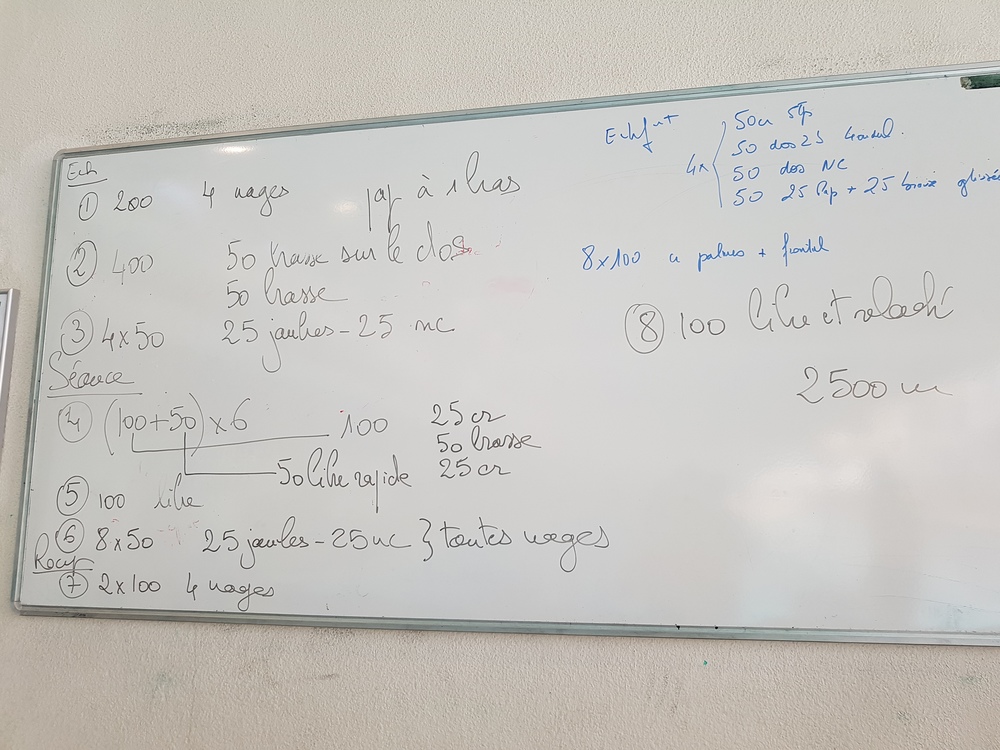 Ech
① 200 4 nages pap à 1 bras
② 400 50 brasse sur le dos
50 brasse
③ 4x50 25 jambes - 25 nc
Séance
④ (100+50) x 6 100 25 cr
50 brasse
25 cr
50 libre rapide
⑤ 100 libre
⑥ 8x50 25 jambes - 25 nc } toutes nages
Recup
⑦ 2x100 4 nages
4x
50 dos 25
50 dos NC
50 25 Pap + 25
8x100 palmes + frontal
⑧ 100 libre et relaché
2500 m